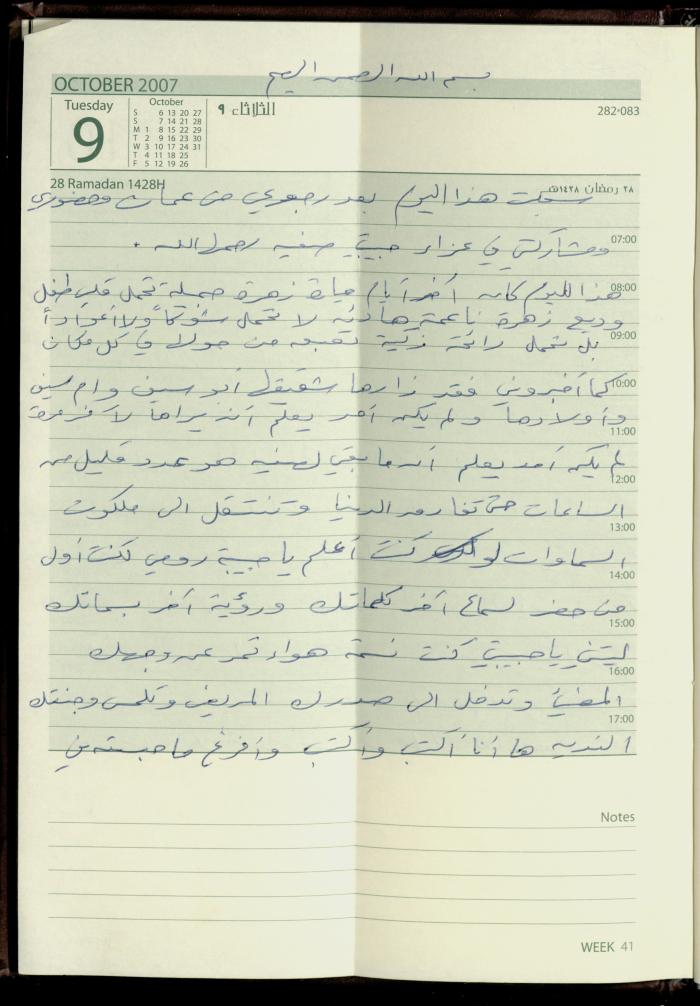 بسم الله الرحمن الرحيم
OCTOBER 2007
Tuesday
9
October
S 6 13 20 27
S 7 14 21 28
M 1 8 15 22 29
T 2 9 16 23 30
W 3 10 17 24 31
T 4 11 18 25
F 5 12 19 26
الثلاثاء ٩
282-083
28 Ramadan 1428H
٢٨ رمضان ١٤٢٨هـ
سجلت هذا اليوم بعد رجوعي من عمان وحضوري
07:00
ومشاركتي في عزاء حبيبتي صفيه رحمها الله .
08:00
هذا اليوم كان آخر أيام حياة زهرة جميلة تحمل قلب طفل
وديع زهرة ناعمة هادئه لا تحمل شوكاً ولا أعواداً
09:00
بل تحمل رائحة زكية تضعه من حولا في كل مكان
10:00
كما أخبروني فقد زارها شقيقها أبو سيف وام سيف
وأولادها ولم يكن أحد يعلم أنه يراها لآخر مرة
11:00
لم يكن أحد يعلم أنه ما بقي لصفيه هو عدد قليل من
12:00
الساعات حتى تفارق الدنيا وتنتقل الى ملكوت
13:00
السماوات لو كنت أعلم يا حبيبة روحي لكنت أول
14:00
من حضر لسماع آخر كلماتك ورؤية آخر بسماتك
15:00
ليتني يا حبيبتي كنت نسمة هواء تمر عن وجهك
16:00
المضيئ وتدخل الى صدرك المريض وتلمس وجنتك
17:00
النديه ها أنا أكتب وأكتب وأفرغ ما حبسته من
Notes
WEEK 41